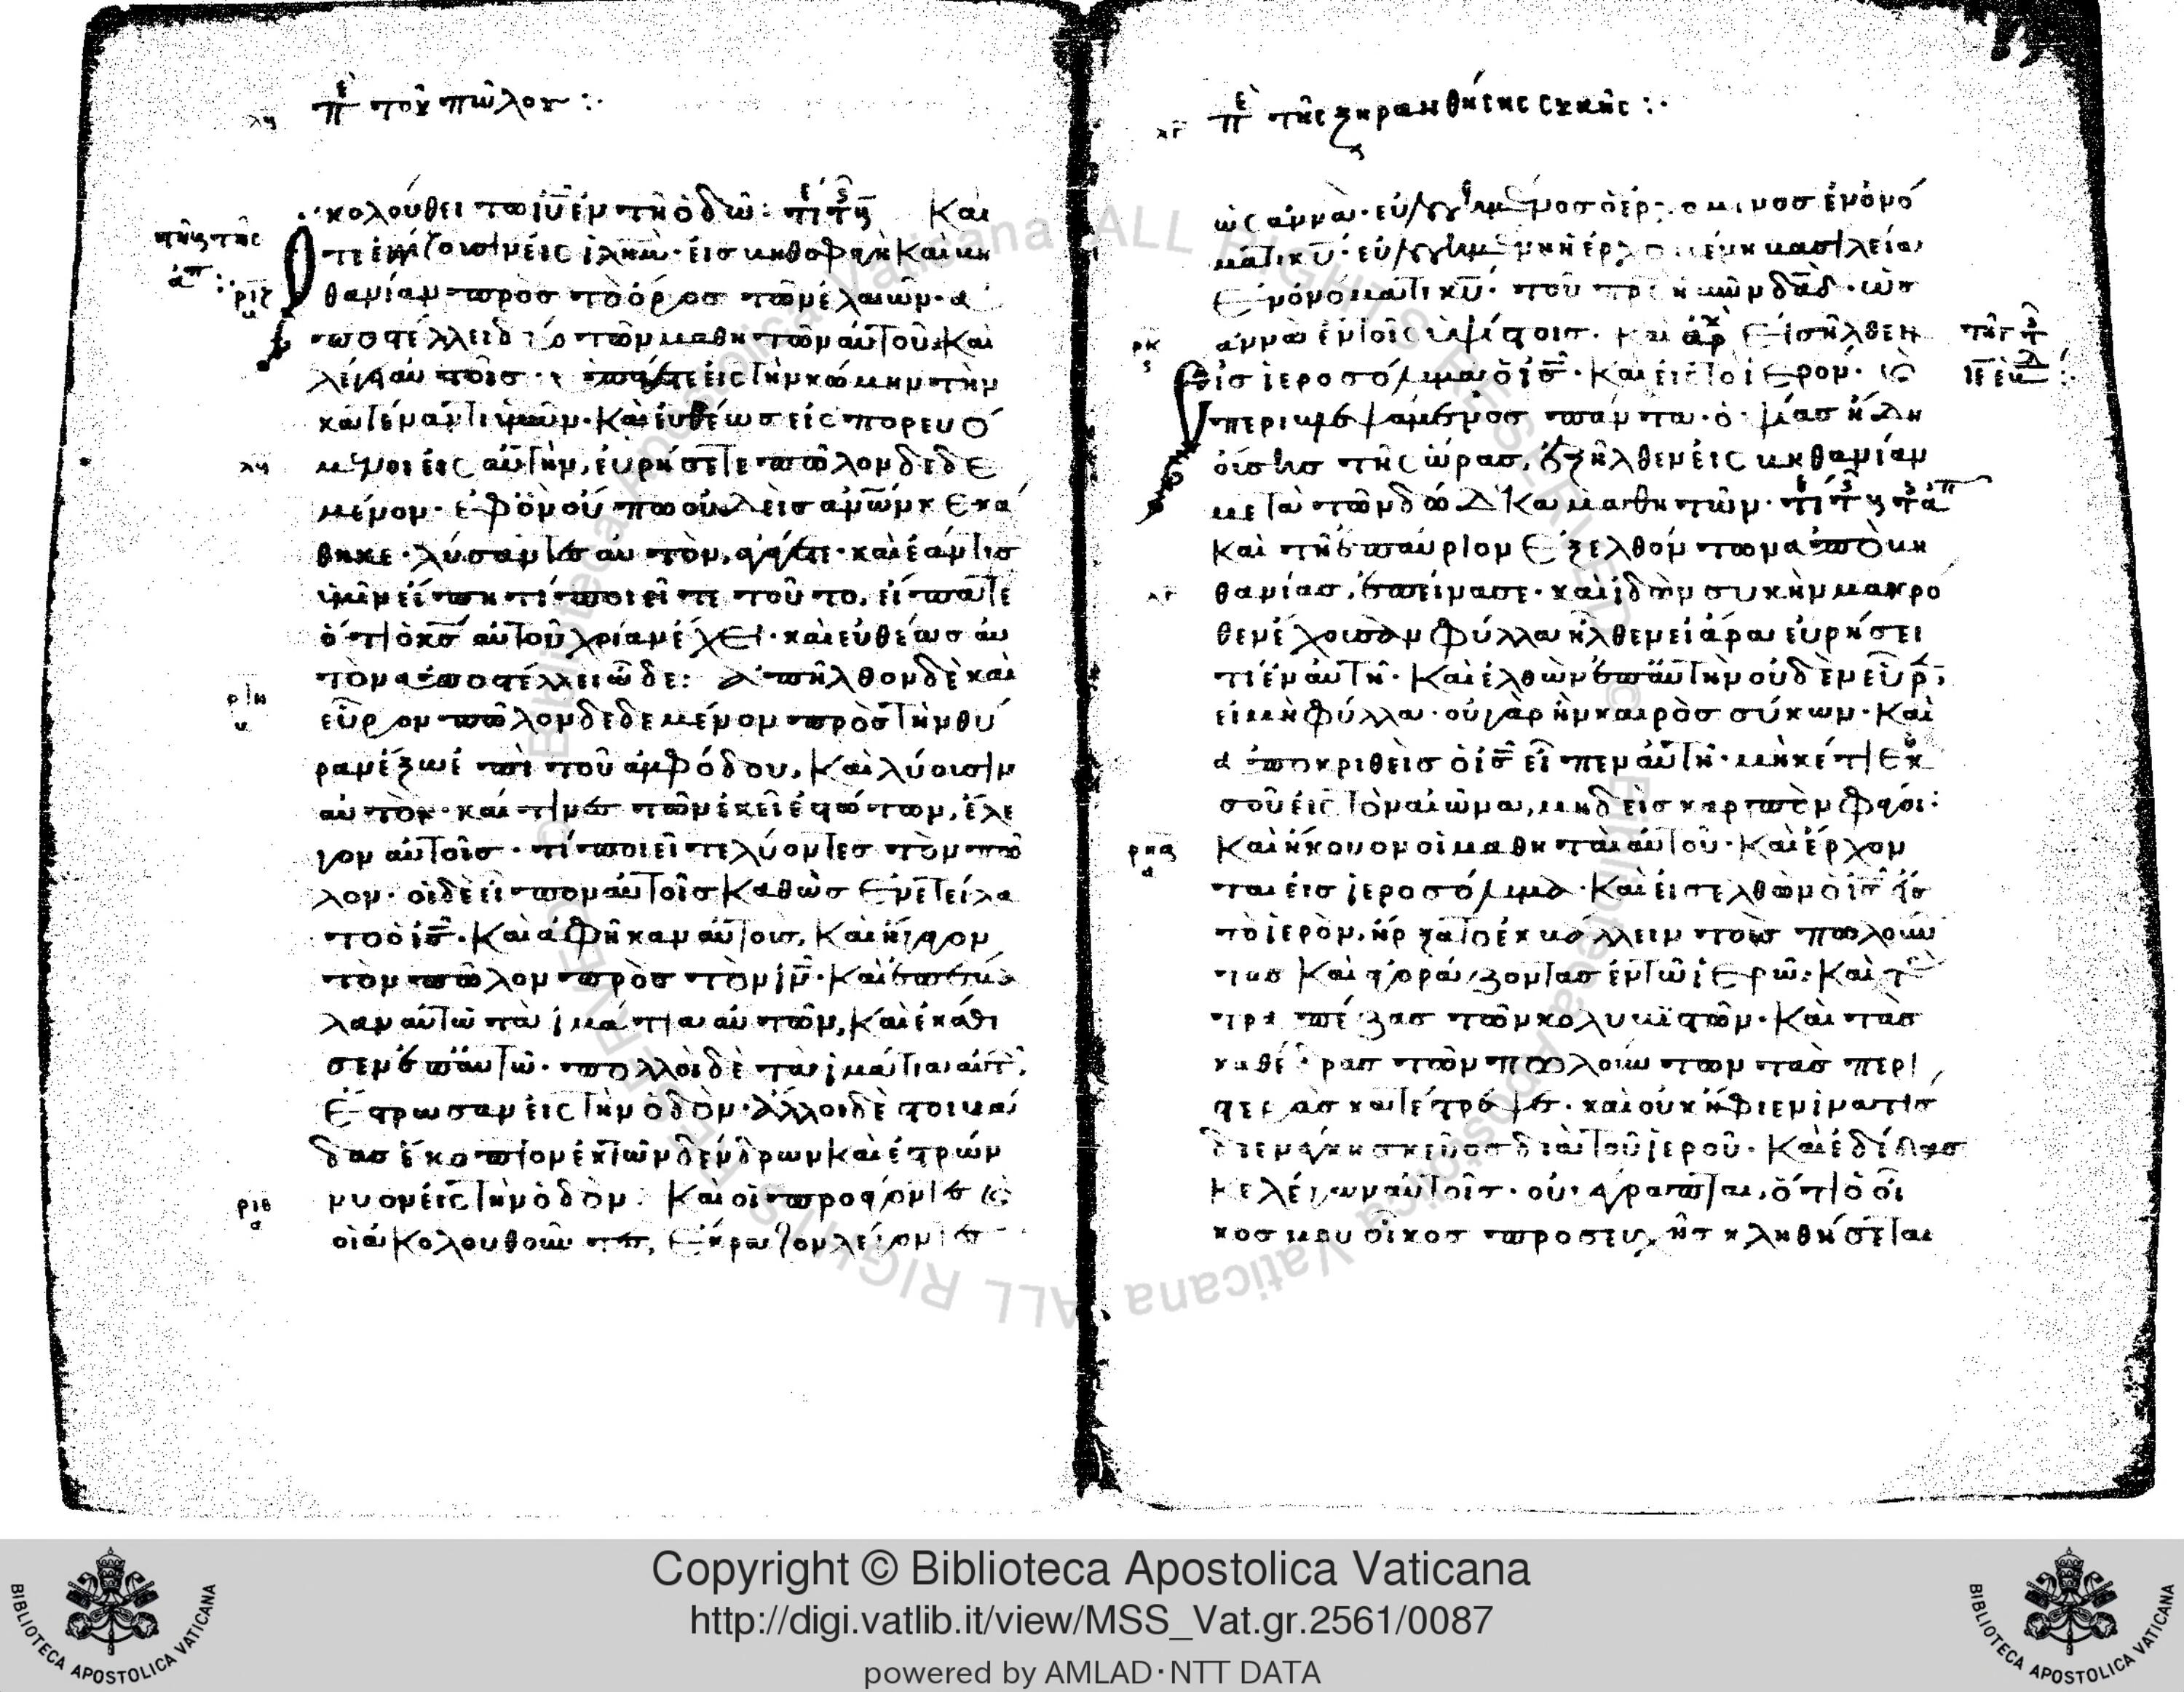 λη περὶ τοῦ πώλου :·
κολούθει τῶ ιῦ ἐν τῆ ὁδῶ: Καὶ
ὅτε ἐγγίζουσιν εἰς ἱλημ· εἰς βηθσφαγὴ Καὶ βη
θανίαν πρὸς τὸ ὄρος τῶν ἐλαιῶν· ἀ
ποστέλλει δύο τῶν μαθητῶν αὐτοῦ· Καὶ
λέγει αὐτοῖς· ὑπάγετε εἰς τὴν κώμην τὴν
κατέναντι ὑμῶν· Καὶ εὐθέως εἰσπορευό
μενοι εἰς αὐτὴν, εὑρήσετε πῶλον δεδε
μένον· ἐφ' ὃν οὔπω οὐδεὶς ἀνων κεκά
θηκε· λύσαντες αὐτὸν, ἀγάγετε· καὶ ἐάν τις
ὑμῖν εἴπη τί ποιεῖτε τοῦτο, εἴπατε
ὅτι ὁ κς αὐτοῦ χρίαν ἔχει· καὶ εὐθέως αὐ
τὸν ἀποστέλλει ὧδε: ἀπῆλθον δὲ καὶ
εὗρον πῶλον δεδεμένον πρὸς τὴν θύ
ραν ἔξω ἐπὶ τοῦ ἀμφόδου, Καὶ λύουσιν
αὐτὸν· καί τινες τῶν ἐκεῖ ἑστώτων, ἔλε
γον αὐτοῖς· τί ποιεῖτε λύοντες τὸν πῶ
λον· οἱ δὲ εἶπον αὐτοῖς Καθὼς ἐνετείλα
το ὁ ις· Καὶ ἀφῆκαν αὐτούς, Καὶ ἤγαγον
τὸν πῶλον πρὸς τὸν ιν· Καὶ ἐπέβα
λαν αὐτῶ τὰ ἱμάτια αὐτῶν, Καὶ ἐκάθι
σεν ἐπ' αὐτῶ· πολλοὶ δὲ τὰ ἱμάτια αὐτ
ἔστρωσαν εἰς τὴν ὁδὸν· ἄλλοι δὲ στοιβά
δας ἔκοπτον ἐκ τῶν δένδρων Καὶ ἐστρών
νυον εἰς τὴν ὁδὸν: Καὶ οἱ προάγοντες Καὶ
οἱ ἀκολουθοῦντες, ἔκραζον λέγοντες
λγ περὶ τῆς ξηρανθήσης συκῆς :·
ὡς ἀννὰ· εὐλογημένος ὁ ἐρχόμενος ἐν ὀνό
ματι κυ· εὐλογημένη ἡ ἐρχομένη βασιλεία
ἐν ὀνόματι κυ· τοῦ πρς ἡμῶν δαδ· ὡσ
αννὰ ἐν τοῖς ὑψίστοις· Καὶ εἰσῆλθεν
εἰς ἱεροσόλυμα ὁ ις· Καὶ εἰς τὸ ἱερόν· Καὶ
περιβλεψάμενος πάντα· ὀψίας ἤδη
οὔσης τῆς ὥρας, ἐξῆλθεν εἰς βηθανίαν
μετὰ τῶν δώδεκα μαθητῶν·
Καὶ τῆ ἐπαύριον ἐξελθόντων ἀπὸ βη
θανίας, ἐπείνασε· καὶ ἰδὼν συκὴν μακρό
θεν ἔχουσαν φύλλα ἦλθεν εἰ ἄρα εὑρήσει
τι ἐν αὐτῆ· Καὶ ἐλθὼν ἐπ' αὐτὴν οὐδὲν εὗρ
εἰ μὴ φύλλα· οὐ γὰρ ἦν καιρὸς σύκων· Καὶ
ἀποκριθεὶς ὁ ις εἶπεν αὐτῆ· μηκέτι ἐκ
σοῦ εἰς τὸν αἰῶνα, μηδεὶς καρπὸν φάγοι:
Καὶ ἤκουον οἱ μαθηταὶ αὐτοῦ· Καὶ ἔρχον
ται εἰς ἱεροσόλυμα· Καὶ εἰσελθὼν ὁ ις εἰς
τὸ ἱερὸν, ἤρξατο ἐκβάλλειν τοὺς πωλοῦν
τας Καὶ ἀγοράζοντας ἐν τῶ ἱερῶ: Καὶ τὰς
τραπέζας τῶν κολυβιστῶν· Καὶ τὰς
καθέδρας τῶν πωλούντων τὰς περι
στερὰς κατέστρεψε· καὶ οὐκ ἤφιεν ἵνα τις
διενέγκη σκεῦος διὰ τοῦ ἱεροῦ· Καὶ ἐδίδασ
κε λέγων αὐτοῖς· οὐ γέγραπται, ὅτι ὁ οἶ
κος μου οἶκος προσευχῆς κληθήσεται
Copyright © Biblioteca Apostolica Vaticana
http://digi.vatlib.it/view/MSS_Vat.gr.2561/0087
powered by AMLAD·NTT DATA
BIBLIOTECA APOSTOLICA VATICANA
BIBLIOTECA APOSTOLICA VATICANA